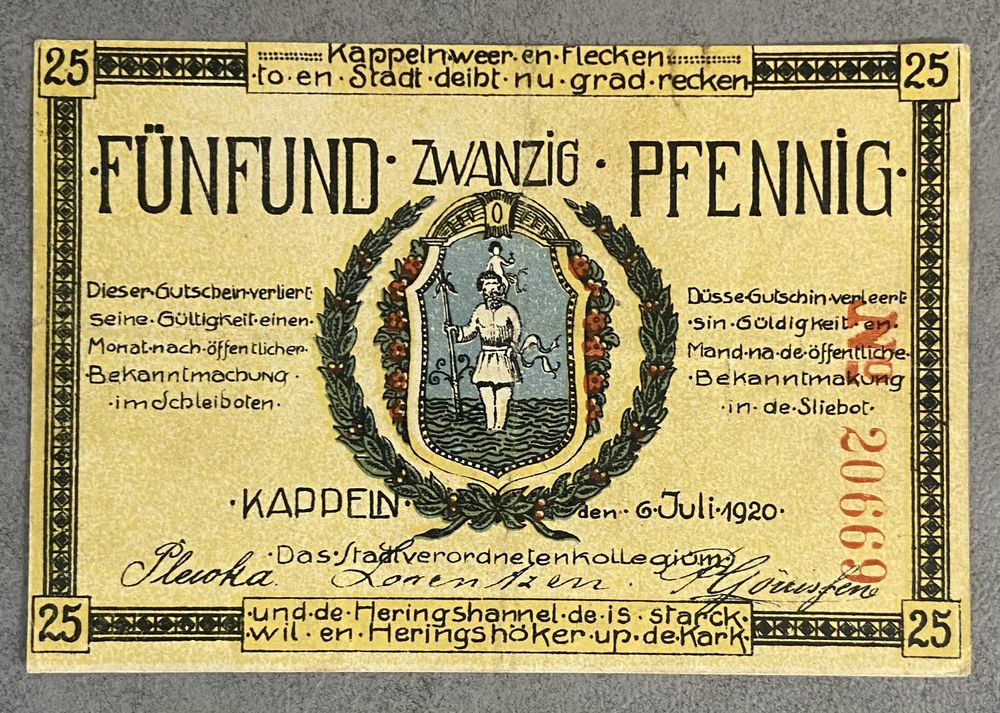 25
Kappeln·weer·en·Flecken
25
to·en·Stadt·deiht·nu·grad·recken
·FÜNFUND· ZWANZIG · PFENNIG·
O
Dieser·Gutschein·verliert·
seine·Gültigkeit·einen·
Monat·nach·öffentlicher·
·Bekanntmachung·
·im·Schleiboten·
Düsse·Gutschin·verleert·
·sin·Güldigkeit·en·
Mand·na·de·öffentliche·
·Bekanntmakung
·in·de·Sliebot·
No 20669
·KAPPELN· den··6·Juli·1920·
·Das·Stadtverordnetenkollegium·
Plewka. Lorentzen.
25
·und·de·Heringshannel·de·is·starck·
25
·wil·en·Heringshöker·up·de·Kark·